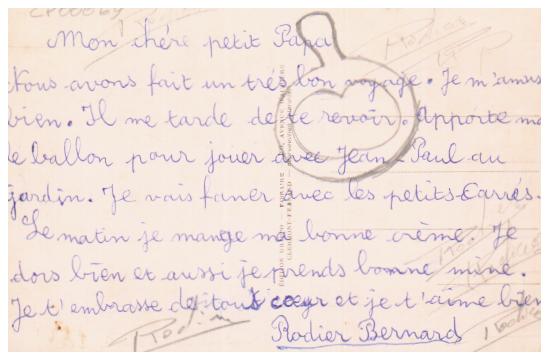 CP00069
Mon chére petit Papa
Nous avons fait un trés bon voyage. Je m'amus
bien. Il me tarde de te revoir. Apporte mo
le ballon pour jouer avec Jean-Paul au
jardin. Je vais faner avec les petits-Carrés.
Le matin je mange ma bonne crème. Je
dors bien et aussi je prends bonne mine.
Je t'embrasse de tout cœur et je t'aime bien
Rodier Bernard
Rodier